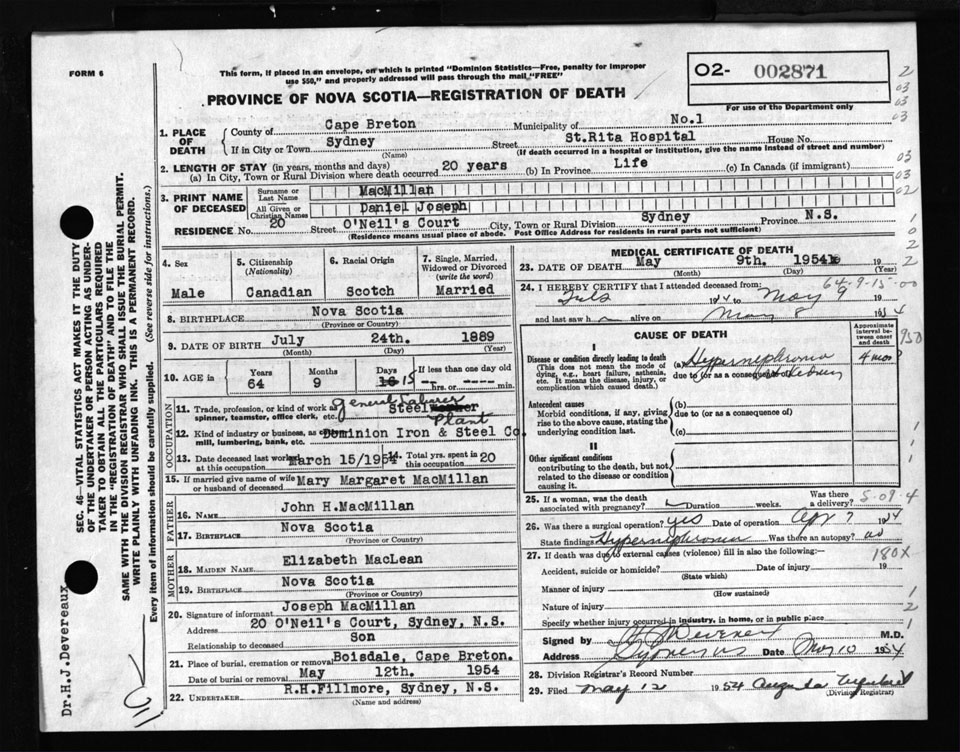 FORM 6
This form, if placed in an envelope, on which is printed "Dominion Statistics—Free, penalty for improper
use $50," and properly addressed will pass through the mail "FREE"
O2- 002871
For use of the Department only
PROVINCE OF NOVA SCOTIA—REGISTRATION OF DEATH
1. PLACE OF DEATH
County of Cape Breton Municipality of No.1
If in City or Town Sydney Street St.Rita Hospital House No.
(Name) (If death occurred in a hospital or institution, give the name instead of street and number)
2. LENGTH OF STAY (in years, months and days)
(a) In City, Town or Rural Division where death occurred 20 years (b) In Province Life (c) In Canada (if immigrant)
3. PRINT NAME OF DECEASED
Surname or Last Name MacMillan
All Given or Christian Names Daniel Joseph
RESIDENCE No. 20 Street O'Neil's Court City, Town or Rural Division Sydney Province N.S.
(Residence means usual place of abode. Post Office Address for residents in rural parts not sufficient)
4. Sex Male
5. Citizenship (Nationality) Canadian
6. Racial Origin Scotch
7. Single, Married, Widowed or Divorced (write the word) Married
8. BIRTHPLACE Nova Scotia
(Province or Country)
9. DATE OF BIRTH July 24th. 1889
(Month) (Day) (Year)
10. AGE in Years 64 Months 9 Days 15 If less than one day old -- hrs. or -- min.
OCCUPATION
11. Trade, profession, or kind of work as spinner, teamster, office clerk, etc. General Laborer Steel Plant
12. Kind of industry or business, as mill, lumbering, bank, etc. Dominion Iron & Steel Co.
13. Date deceased last worked at this occupation March 15/1954 14. Total yrs. spent in this occupation 20
15. If married give name of wife or husband of deceased Mary Margaret MacMillan
FATHER
16. NAME John H.MacMillan
17. BIRTHPLACE Nova Scotia
(Province or Country)
MOTHER
18. MAIDEN NAME Elizabeth MacLean
19. BIRTHPLACE Nova Scotia
(Province or Country)
20. Signature of informant Joseph MacMillan
Address 20 O'Neil's Court, Sydney, N.S.
Relationship to deceased Son
21. Place of burial, cremation or removal Boisdale, Cape Breton.
Date of burial or removal May 12th. 1954
22. UNDERTAKER R.H.Fillmore, Sydney, N.S.
(Name and address)
MEDICAL CERTIFICATE OF DEATH
23. DATE OF DEATH May 9th. 1954 19
(Month) (Day) (Year)
64-9-15-00
24. I HEREBY CERTIFY that I attended deceased from:
1954 to May 9 19
and last saw h alive on May 8 1954
CAUSE OF DEATH
Approximate interval between onset and death
I
Disease or condition directly leading to death
(This does not mean the mode of dying, e.g., heart failure, asthenia, etc. It means the disease, injury, or complication which caused death.)
(a) Hypernephroma 4 mos
due to (or as a consequence of)
Antecedent causes
Morbid conditions, if any, giving rise to the above cause, stating the underlying condition last.
(b)
due to (or as a consequence of)
(c)
II
Other significant conditions
contributing to the death, but not related to the disease or condition causing it.
25. If a woman, was the death associated with pregnancy? Duration weeks. Was there a delivery?
5-09-4
26. Was there a surgical operation? yes Date of operation Apr 7 1954
State findings Hypernephroma Was there an autopsy? no
27. If death was due to external causes (violence) fill in also the following:
180X
Accident, suicide or homicide? Date of injury 19
(State which)
Manner of injury
(How sustained)
Nature of injury
Specify whether injury occurred in industry, in home, or in public place
Signed by M.D.
Address Sydney NS Date May 10 1954
28. Division Registrar's Record Number
29. Filed May 12 1954
(Division Registrar)
SEC. 46—VITAL STATISTICS ACT MAKES IT THE DUTY
OF THE UNDERTAKER OR PERSON ACTING AS UNDER-
TAKER TO OBTAIN ALL THE PARTICULARS REQUIRED
IN THE "REGISTRATION OF DEATH" AND TO FILE THE
SAME WITH THE DIVISION REGISTRAR WHO SHALL ISSUE THE BURIAL PERMIT.
WRITE PLAINLY WITH UNFADING INK. THIS IS A PERMANENT RECORD.
Every item of information should be carefully supplied. (See reverse side for instructions.)
Dr.H.J.Devereaux